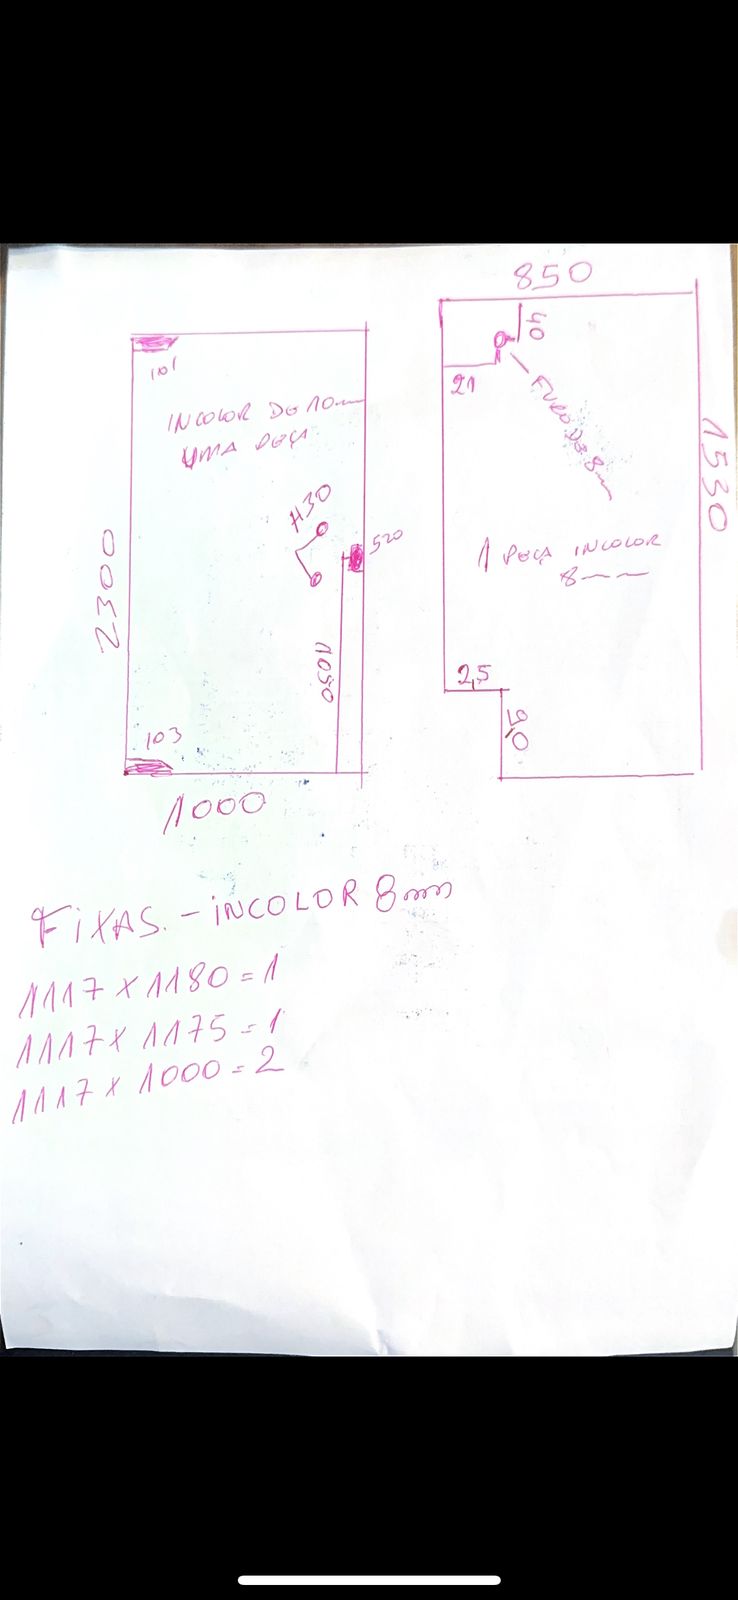 850
40
21
FURO DE 8m
101
INCOLOR DE 10mm
UMA PEÇA
H30
520
2300
1050
1530
1 PEÇA INCOLOR
8mm
2,5
9,0
103
1000
FIXAS. - INCOLOR 8mm
1117 x 1180 = 1
1117 x 1175 = 1
1117 x 1000 = 2